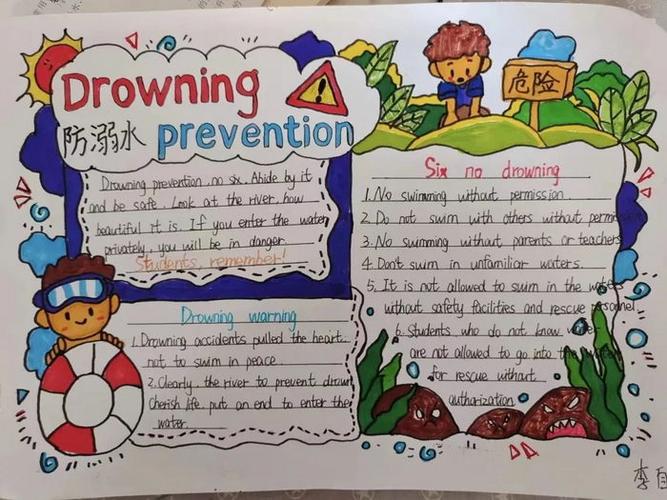 Drowning
防溺水 prevention
危险
Drowning prevention, no six. Abide by it
and be safe. Look at the river, how
beautiful it is. If you enter the water
privately, you will be in danger.
Students, remember!
Drowning warning
1. Drowning accidents pulled the heart,
not to swim in peace.
2. Clearly, the river to prevent drown
Cherish life, put an end to enter the
water.
Six no drowning
1. No swimming without permission.
2. Do not swim with others without permission
3. No swimming without parents or teachers
4. Don't swim in unfamiliar waters.
5. It is not allowed to swim in the waters
without safety facilities and rescue personnel
6. Students who do not know water
are not allowed to go into the water
for rescue without
authorization
李